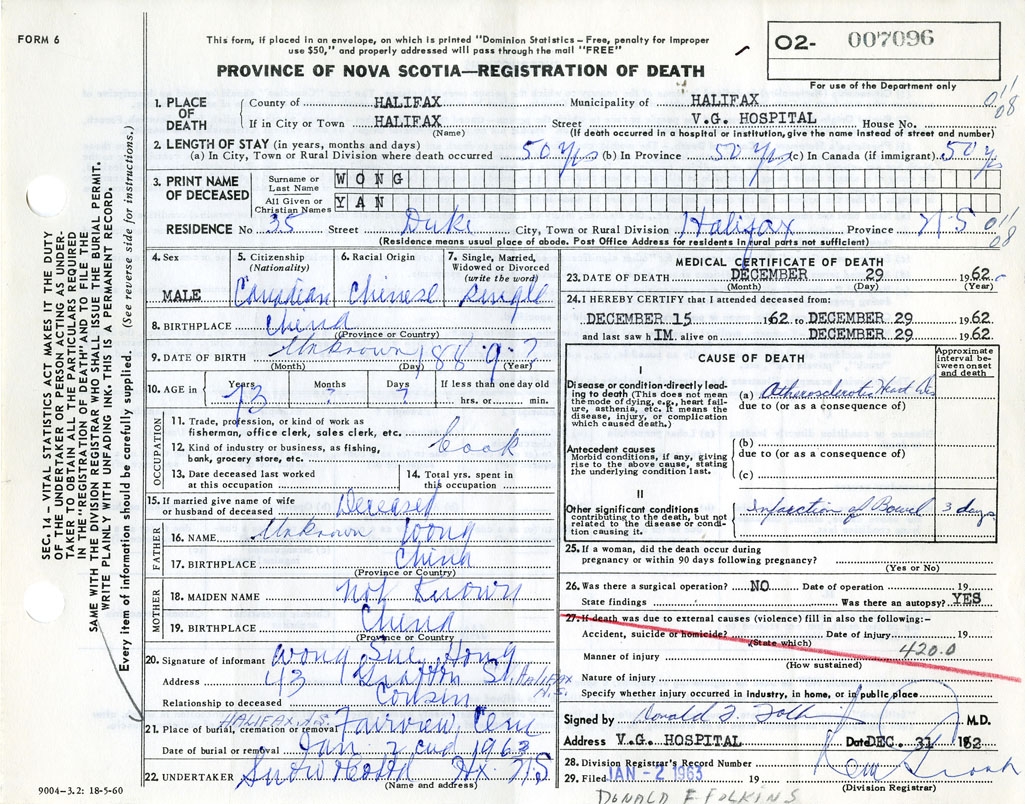 FORM 6
This form, if placed in an envelope, on which is printed "Dominion Statistics – Free, penalty for improper
use $50," and properly addressed will pass through the mail "FREE"
02- 007096
For use of the Department only
PROVINCE OF NOVA SCOTIA—REGISTRATION OF DEATH
SEC. 14 – VITAL STATISTICS ACT MAKES IT THE DUTY
OF THE UNDERTAKER OR PERSON ACTING AS UNDER-
TAKER TO OBTAIN ALL THE PARTICULARS REQUIRED
IN THE "REGISTRATION OF DEATH" AND TO FILE THE
SAME WITH THE DIVISION REGISTRAR WHO SHALL ISSUE THE BURIAL PERMIT.
WRITE PLAINLY WITH UNFADING INK. THIS IS A PERMANENT RECORD.
Every item of information should be carefully supplied. (See reverse side for instructions.)
1. PLACE OF DEATH
County of HALIFAX Municipality of HALIFAX 011/08
If in City or Town HALIFAX Street V.G. HOSPITAL House No.
(Name) (If death occurred in a hospital or institution, give the name instead of street and number)
2. LENGTH OF STAY (in years, months and days)
(a) In City, Town or Rural Division where death occurred 50 yrs (b) In Province 50 yrs (c) In Canada (if immigrant) 50 yrs
3. PRINT NAME OF DECEASED
Surname or Last Name WONG
All Given or Christian Names YAN
RESIDENCE No 35 Street Duke City, Town or Rural Division Halifax Province N S 011/08
(Residence means usual place of abode. Post Office Address for residents in rural parts not sufficient)
4. Sex MALE
5. Citizenship (Nationality) Canadian
6. Racial Origin Chinese
7. Single, Married, Widowed or Divorced (write the word) Single
8. BIRTHPLACE China
(Province or Country)
9. DATE OF BIRTH Unknown 188 9 ?
(Month) (Day) (Year)
10. AGE in Years 73 Months ? Days ? If less than one day old
hrs. or min.
OCCUPATION
11. Trade, profession, or kind of work as
fisherman, office clerk, sales clerk, etc.
Cook
12. Kind of industry or business, as fishing,
bank, grocery store, etc.
13. Date deceased last worked
at this occupation
14. Total yrs. spent in
this occupation
15. If married give name of wife
or husband of deceased Deceased
FATHER
16. NAME Unknown Wong
17. BIRTHPLACE China
(Province or Country)
MOTHER
18. MAIDEN NAME Not Known
19. BIRTHPLACE China
(Province or Country)
20. Signature of informant Wong Sue Hong
Address 43 Grafton St. Halifax N.S.
Relationship to deceased Cousin
21. Place of burial, cremation or removal HALIFAX, N.S. Fairview Cem
Date of burial or removal Jan. 2 1963
22. UNDERTAKER Snow Hx. N.S
(Name and address)
9004-3.2: 18-5-60
MEDICAL CERTIFICATE OF DEATH
23. DATE OF DEATH DECEMBER 29 1962
(Month) (Day) (Year)
24. I HEREBY CERTIFY that I attended deceased from:
DECEMBER 15 162 to DECEMBER 29 1962
and last saw h IM. alive on DECEMBER 29 1962
CAUSE OF DEATH
Approximate interval be-tween onset and death
I
Disease or condition directly lead-
ing to death (This does not mean
the mode of dying, e.g., heart fail-
ure, asthenia, etc. It means the
disease, injury, or complication
which caused death.)
(a) Atherosclerotic Heart Dis
due to (or as a consequence of)
Antecedent causes
Morbid conditions, if any, giving
rise to the above cause, stating
the underlying condition last.
(b)
due to (or as a consequence of)
(c)
II
Other significant conditions
contributing to the death, but not
related to the disease or condi-
tion causing it.
Infarction of Bowel 3 days
25. If a woman, did the death occur during
pregnancy or within 90 days following pregnancy?
(Yes or No)
26. Was there a surgical operation? NO Date of operation 19
State findings Was there an autopsy? YES
27. If death was due to external causes (violence) fill in also the following:–
Accident, suicide or homicide? Date of injury 19
(State which) 420.0
Manner of injury
(How sustained)
Nature of injury
Specify whether injury occurred in industry, in home, or in public place
Signed by Donald F. Folkins M.D.
Address V.G. HOSPITAL Date DEC. 31 162
28. Division Registrar's Record Number
29. Filed JAN - 2 1963 19
(Division Registrar)
DONALD F FOLKINS